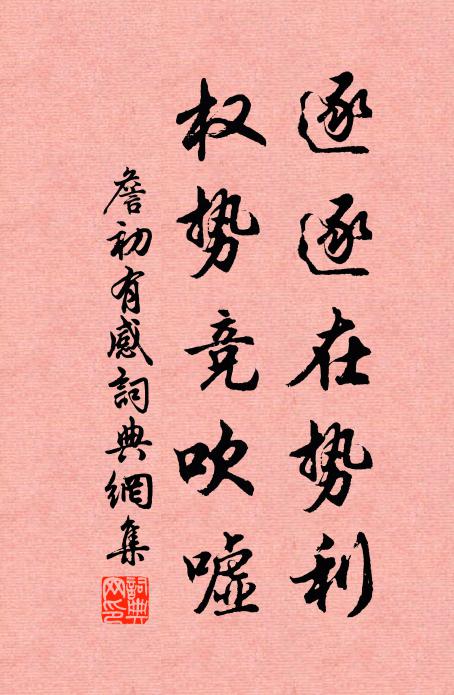 逐逐在势利
权势竞吹嘘
詹初有感詞典網集
詞典網印